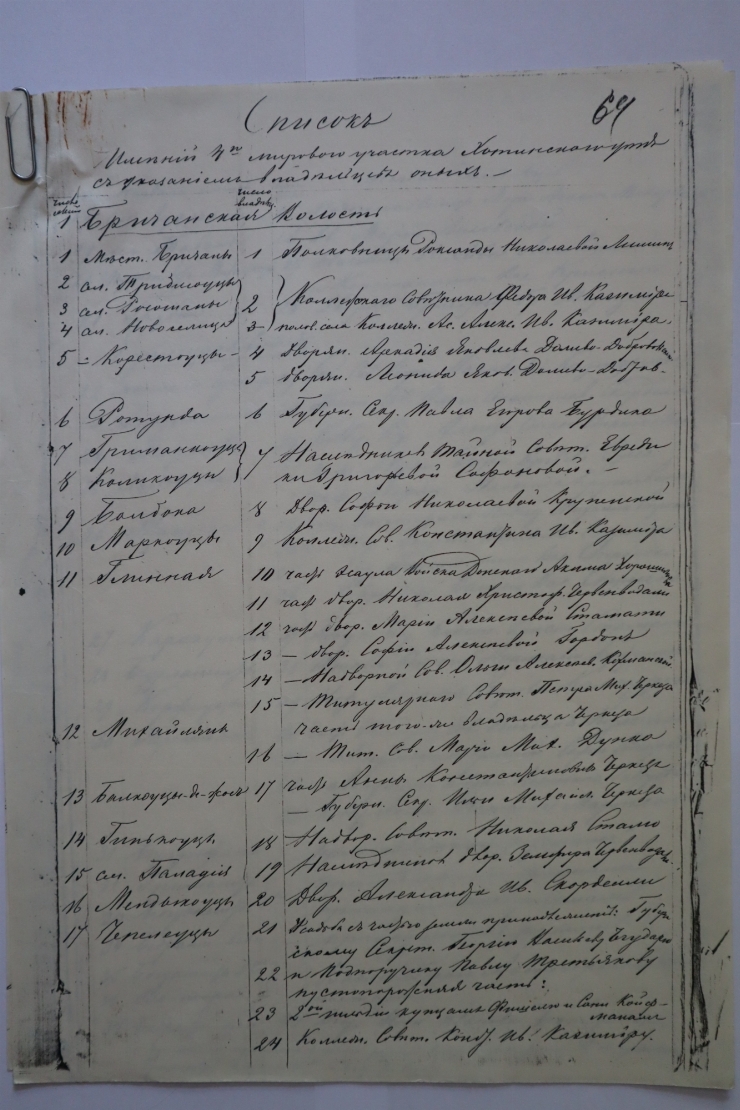 Списокъ 64
Имѣній 4го мирового участка Хотинскаго уѣзда
съ указаніемъ владѣльцевъ оныхъ. —
число имѣній число владѣл.
1 Бричанская волость
1 Мѣст. Бричаны 1 Полковницы Роксанды Николаевой
2 ал. 
3 ал. Росошаны 2 Коллежскаго Совѣтника Федора Ив. Казиміра
4 ал. Новоселица 3 полов. села Коллеж. Ас. Алекс. Ив. Казиміра.
5 – Корестоуцы – 4 Дворян. Аркадія Яковлева Доливо-Добровол.
5 дворян. Леонида Яков. Доливо-Добров.
6 Ротунда 6 Губерн. Секр. Павла Егорова Бурдина
7 Гриманкоуцы 7 Наслѣдниковъ Тайной Совѣт. Еврели-
8 Коликоуцы ки Григорьевой Сафоновой. —
9 Болбока 8 Двор. Софіи Николаевой Крупенской
10 Маркоуцы 9 Коллеж. Сов. Константина Ив. Казиміра
11 Глинная 10 част. Есаула Войска Донскаго Акима
11 част. двор. Николая Христоф. Червенводали
12 част. двор. Маріи Алексѣевой Стамати
13 — двор. Софіи Алексѣевой Гордонъ
14 — Надворной Сов. Ольги Алексѣев.
15 — Титулярнаго Совѣт. Петра Мих. Черкеза
12 Михайляны часть того-же владѣльца Черкеза
16 — Тит. Сов. Маріи Мих. Дунка
13 Балкоуцы-де-жосъ 17 част. Анны Константиновны Черкеза
— Губерн. Секр. Ильи Михайл. Черкеза
14 Гинькоуцы 18 Надвор. Совѣт. Николая Стамо
15 ал. Паладія 19 Наслѣдниковъ двор. Земфира Червенводали
16 Мендыкоуцы 20 Двор. Александра Ив. Скордели
17 Чепелеуцы 21 Усадьба съ частью земли принадлежитъ: Губерн-
скому Секрет. Георгію
22 и Подпоручику Павлу Третьякову
пустопорожняя часть:
23 2ой гильдіи купцамъ Фишелю и Сани Койф-
манамъ
24 Коллеж. Совѣт. Конст. Ив. Казиміру.